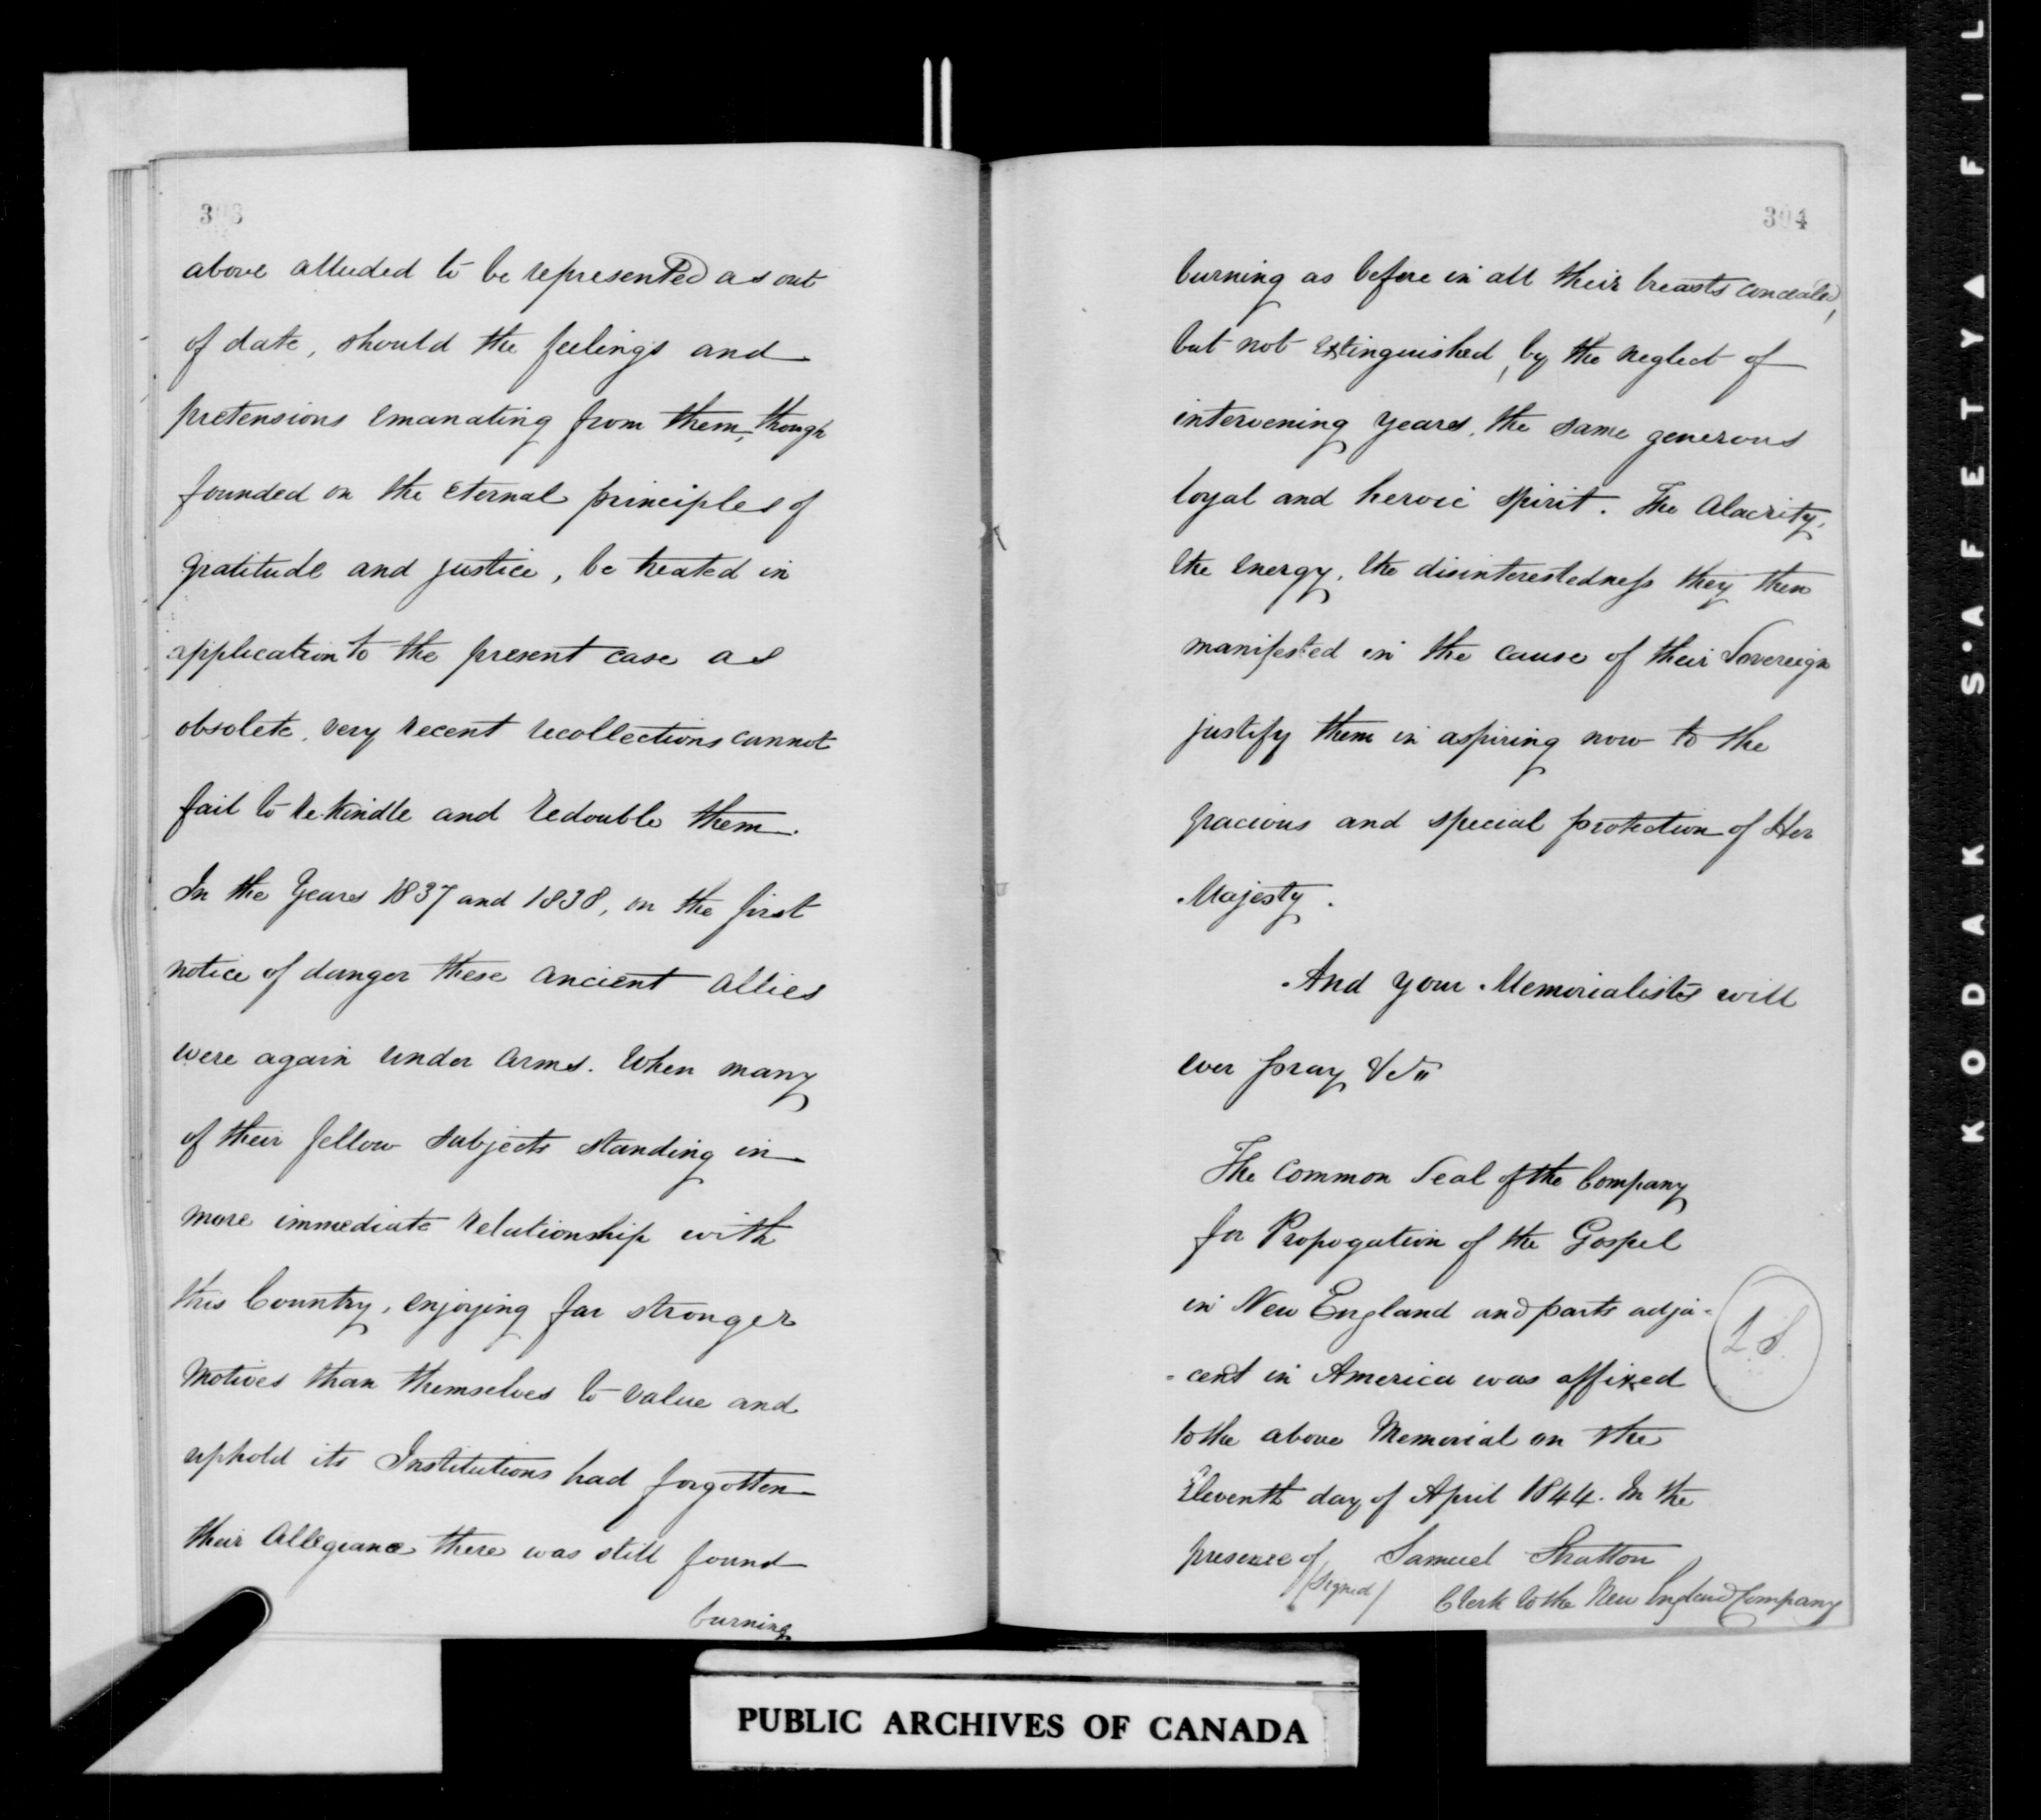 303
above alluded to be represented as out
of date, should the feelings and
pretensions emanating from them, though
founded on the eternal principles of
gratitude and justice, be treated in
application to the present case as
obsolete, very recent recollections cannot
fail to re-kindle and redouble them.
In the Years 1837 and 1838, on the first
notice of danger these ancient allies
were again under arms. When many
of their fellow subjects standing in
more immediate relationship with
this Country, enjoying far stronger
Motives than themselves to value and
uphold its Institutions had forgotten
their Allegiance there was still found
burning
304
burning as before in all their breasts concealed,
but not extinguished, by the neglect of
intervening years, the same generous
loyal and heroic spirit. The Alacrity,
the energy, the disinterestedness they then
manifested in the cause of their Sovereign
justify them in aspiring now to the
gracious and special protection of Her
Majesty.
And your Memorialists will
ever pray &c
The Common Seal of the Company
for Propogation of the Gospel
in New England and parts adja-
-cent in America was affixed
to the above Memorial on the
Eleventh day of April 1844. In the
presence of Samuel Stratton
(Signed) Clerk to the New England Company
L.S.
PUBLIC ARCHIVES OF CANADA
KODAK S'AFETY▲FIL